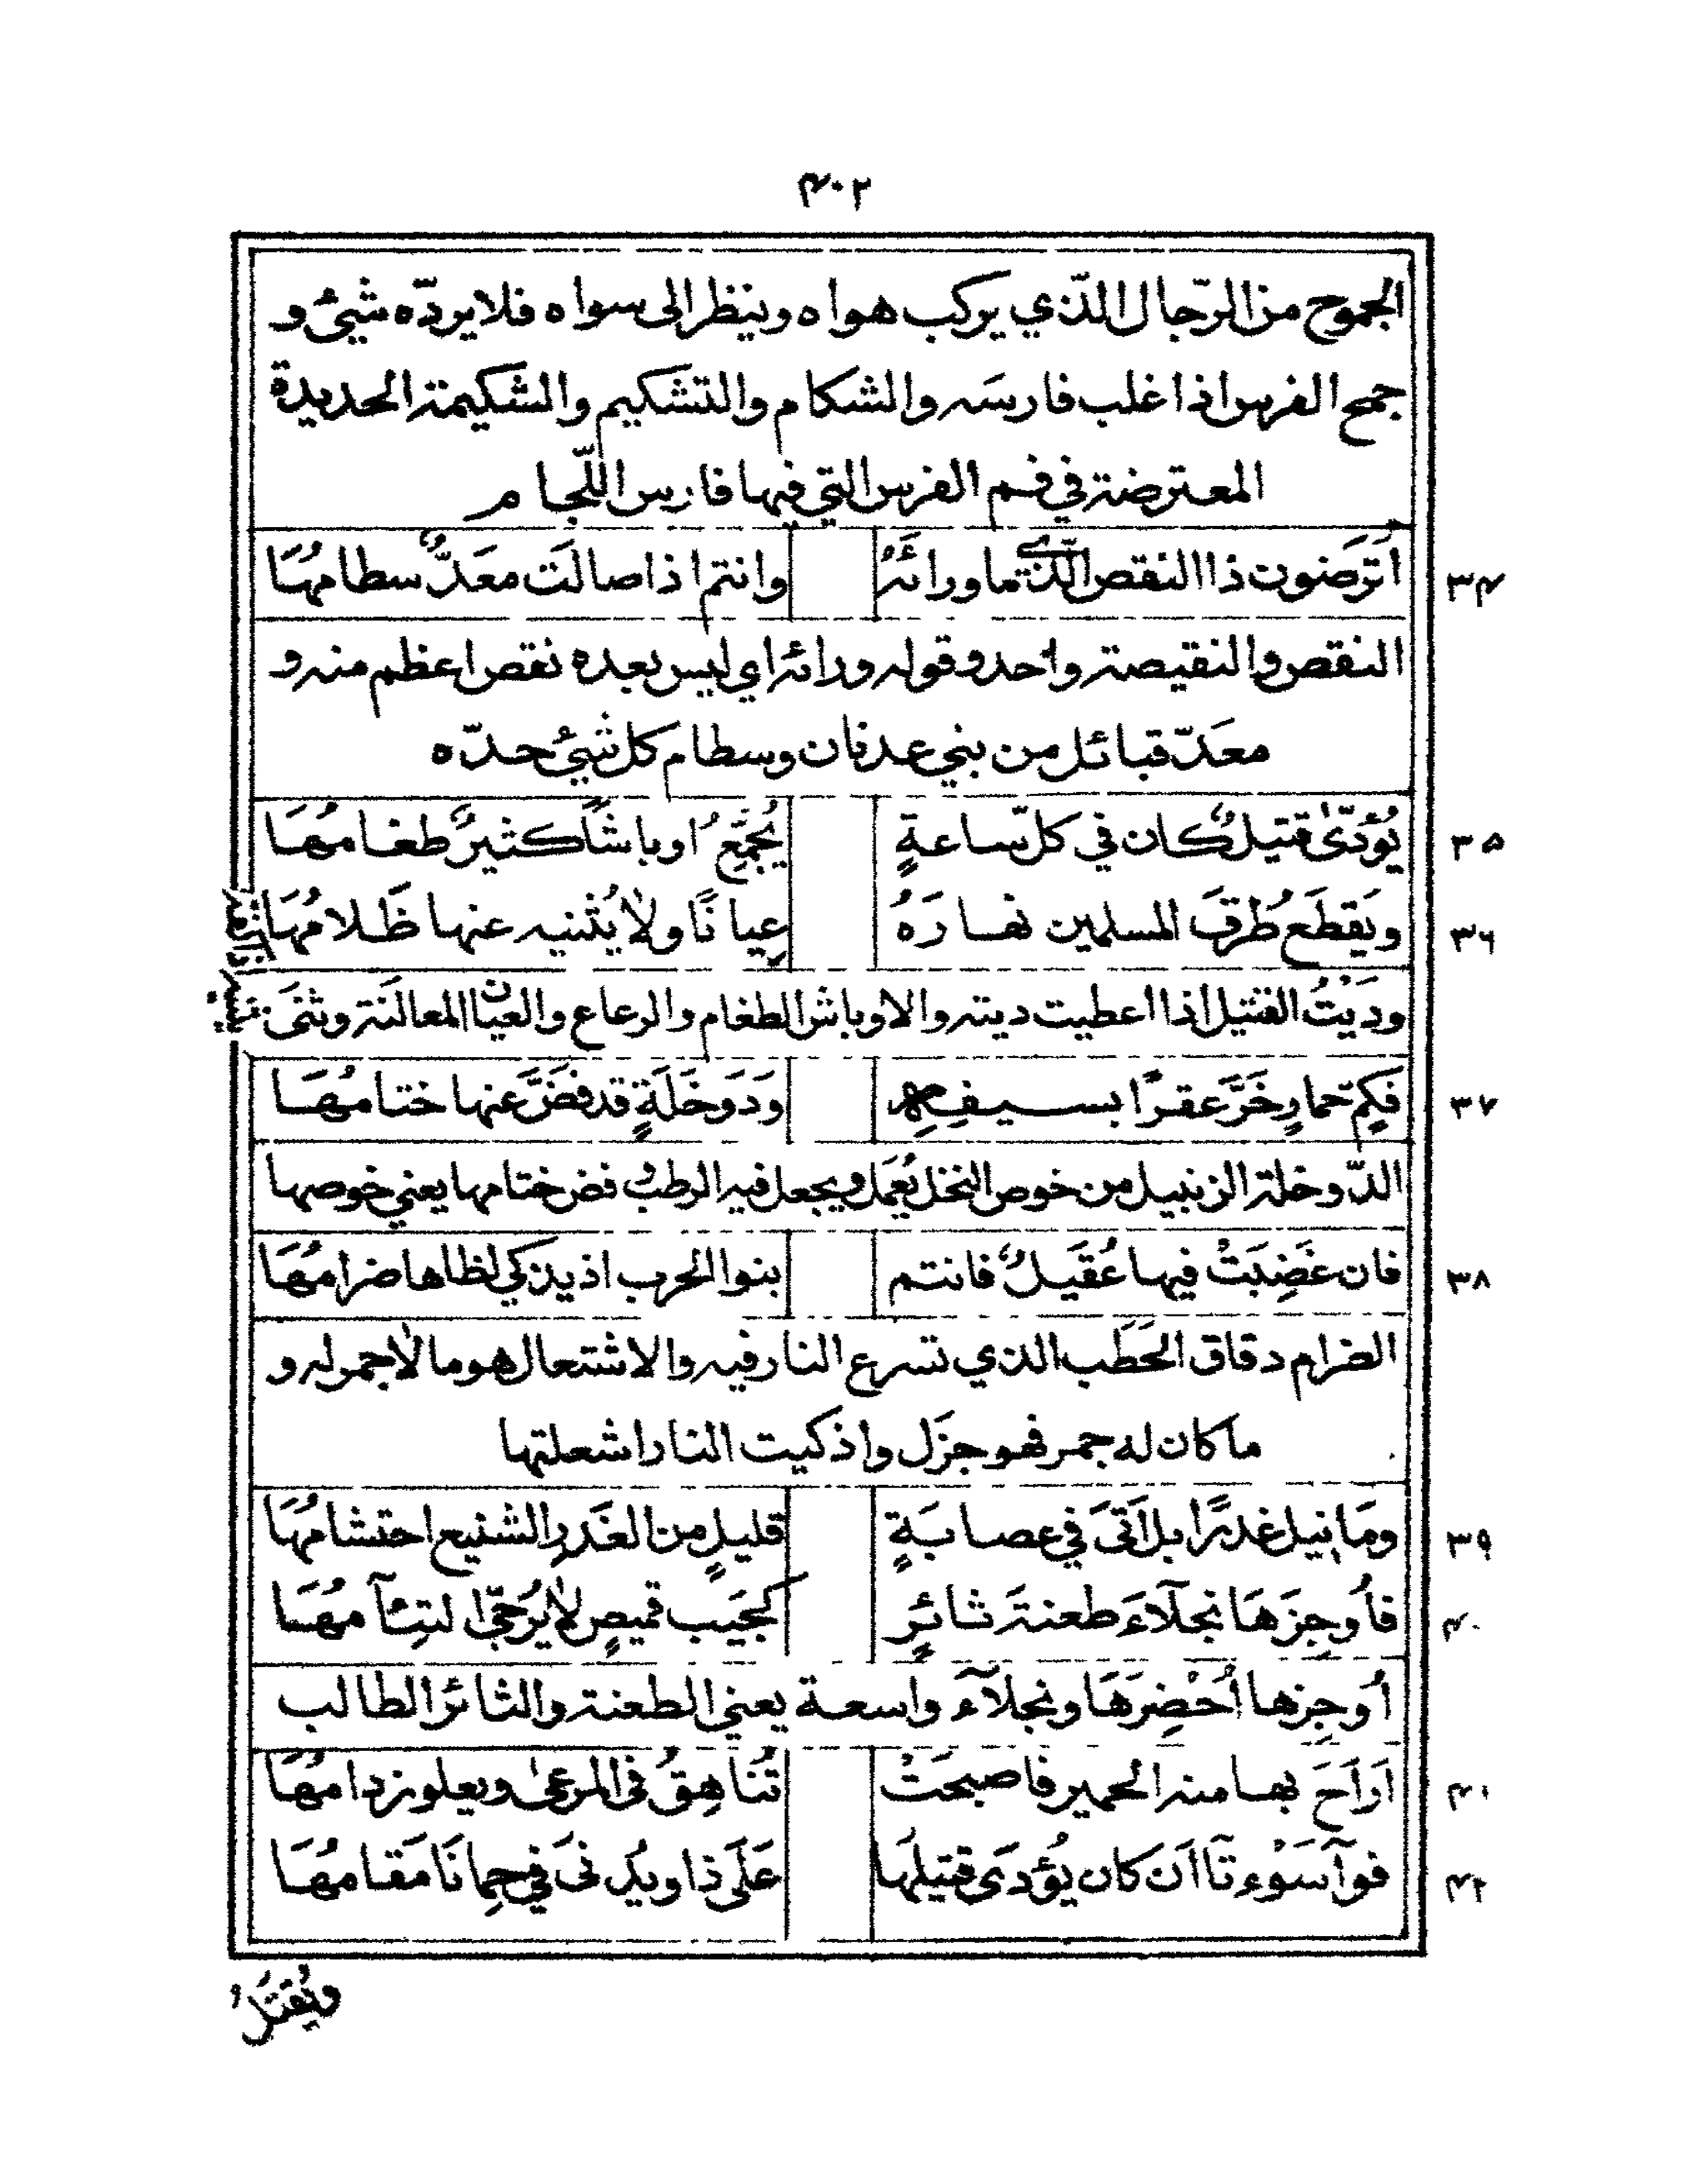 ٤٠٢
الجموح من الرّجال الّذي يركب هواه وينظر الى سواه فلا يردّه شيئ و
جمح الفرس اذا غلب فارسَه والشكام والتشكيم والشكيمة الحديدة
المعترضة في فم الفرس التي فيها فارس اللّجام
٣٤ اَترَضون ذا النقص الّذي ما ورائَهُ وانتم اذا صالَت معَدٌّ سطامهُا
النقص والنقيصة واحد وقوله ورائه اي ليس بعده نقص اعظم منه و
معَدّ قبائل من بني عدنان وسطام كل شيئ حدّه
٣٥ يُؤدّىٰ قتيلٌ كان في كلّ ساعةٍ يُجمِّعُ اوباشًا كثيرٌ طغامهُا
٣٦ ويَقطَع طُرقَ المسلمين نهارَهُ عِيانًا ولا يُثنيه عنها ظَلامُهَا
ودَيْتُ القتيل اذا اعطيت ديته والاوباش الطغام والرعاع والعيان المعالَنة وثنَى
٣٧ فكم حمارٍ خَرَّ عقرًا بسيفِهِ ودَوخَلَةٍ قد فضَّ عنها ختامهُا
الدّوخلة الزنبيل من خوص النخل يُعمَل ويجعل فيه الرطب وفض ختامها يعني خوصها
٣٨ فان غَضِبَتْ فيها عُقَيلٌ فانتم بنوا الحرب اذ يذكي لظاها ضرامهُا
الضرام دقاق الحَطَب الذي تسرع النار فيه والاشتعال هو ما لا جمر له و
ما كان له جمر فهو جزل واذكيت النار اشعلتها
٣٩ ومَا نيل غدرًا بل اَتىَ في عصابَةٍ قليلٍ من الغَدرِ الشنيع احتشامهُا
٤٠ فأُوجِزَهَا نجلآءَ طعنةَ ثائرٍ كجَيب قميصٍ لا يُرَجّىٰ لتِئآمهُا
أُوجِزها أُحْضِرَهَا ونجلآءَ واسعة يعني الطعنة والثائر الطالب
٤١ اَراَحَ بها منه الحمير فاصبحَتْ تُناهِقُ في المرعىٰ ويعلو زدامهُا
٤٢ فوآسَوْءتَآ اَن كان يُؤدَى قتيلها عَلَى ذا ويُدنىَ في حِمانَا مَقامهُا
ويُقتَلُ